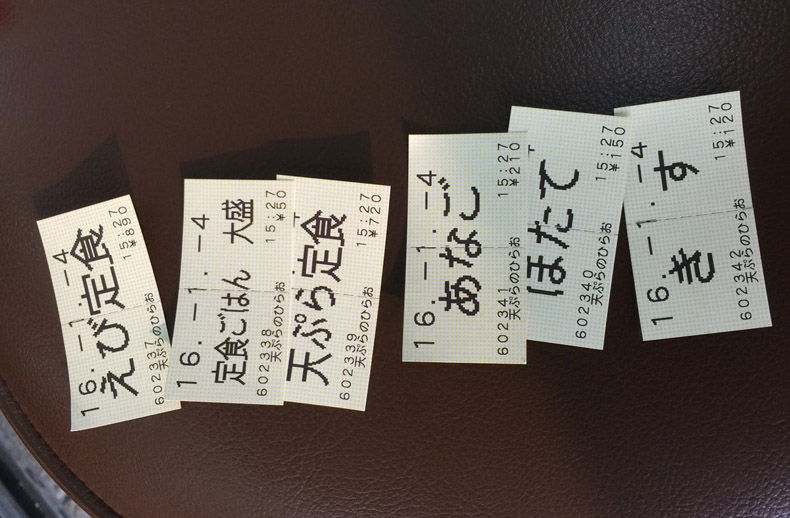 16.-1.-4
えび定食
15:27
602337 ¥890
天ぷらのひらお
16.-1.-4
定食ごはん 大盛
15:27
602338 ¥50
天ぷらのひらお
天ぷら定食
15:27
602339 ¥720
天ぷらのひらお
16.-1.-4
あなご
15:27
602341 ¥210
天ぷらのひらお
ほたて
15:27
602340 ¥150
天ぷらのひらお
16.-1.-4
きす
15:27
602342 ¥120
天ぷらのひらお